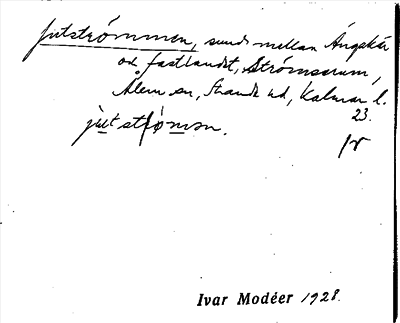 Jutströmmen, sund mellan Ängskär
och fastlandet, Strömsrum,
Ålem sn, Strands hd, Kalmar l.
23.
jut strömən.
Ivar Modéer 1928.